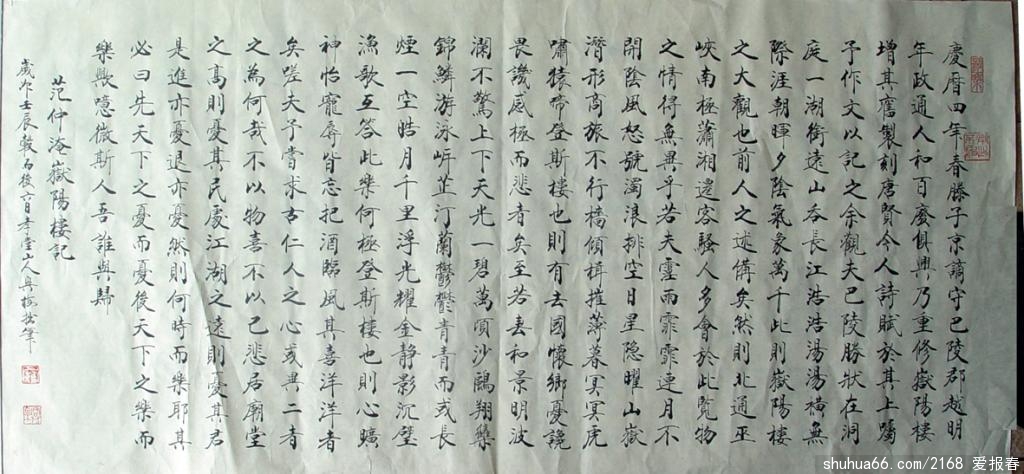 慶曆四年春滕子京謫守巴陵郡越明
年政通人和百廢俱興乃重修嶽陽樓
增其舊製刻唐賢今人詩賦於其上囑
予作文以記之余觀夫巴陵勝狀在洞
庭一湖銜遠山吞長江浩浩湯湯橫無
際涯朝暉夕陰氣象萬千此則嶽陽樓
之大觀也前人之述備矣然則北通巫
峽南極瀟湘遷客騷人多會於此覽物
之情得無異乎若夫霪雨霏霏連月不
開陰風怒號濁浪排空日星隱曜山嶽
潛形商旅不行檣傾楫摧薄暮冥冥虎
嘯猿啼登斯樓也則有去國懷鄉憂讒
畏譏感極而悲者矣至若春和景明波
瀾不驚上下天光一碧萬頃沙鷗翔集
錦鱗游泳岸芷汀蘭鬱鬱青青而或長
煙一空皓月千里浮光耀金靜影沉璧
漁歌互答此樂何極登斯樓也則心曠
神怡寵辱皆忘把酒臨風其喜洋洋者
矣嗟夫予嘗求古仁人之心或異二者
之為何哉不以物喜不以己悲居廟堂
之高則憂其民處江湖之遠則憂其君
是進亦憂退亦憂然則何時而樂耶其
必曰先天下之憂而憂後天下之樂而
樂歟噫微斯人吾誰與歸
范仲淹嶽陽樓記
歲次壬辰穀雨後六日
shuhua66.com/2168 爱报春